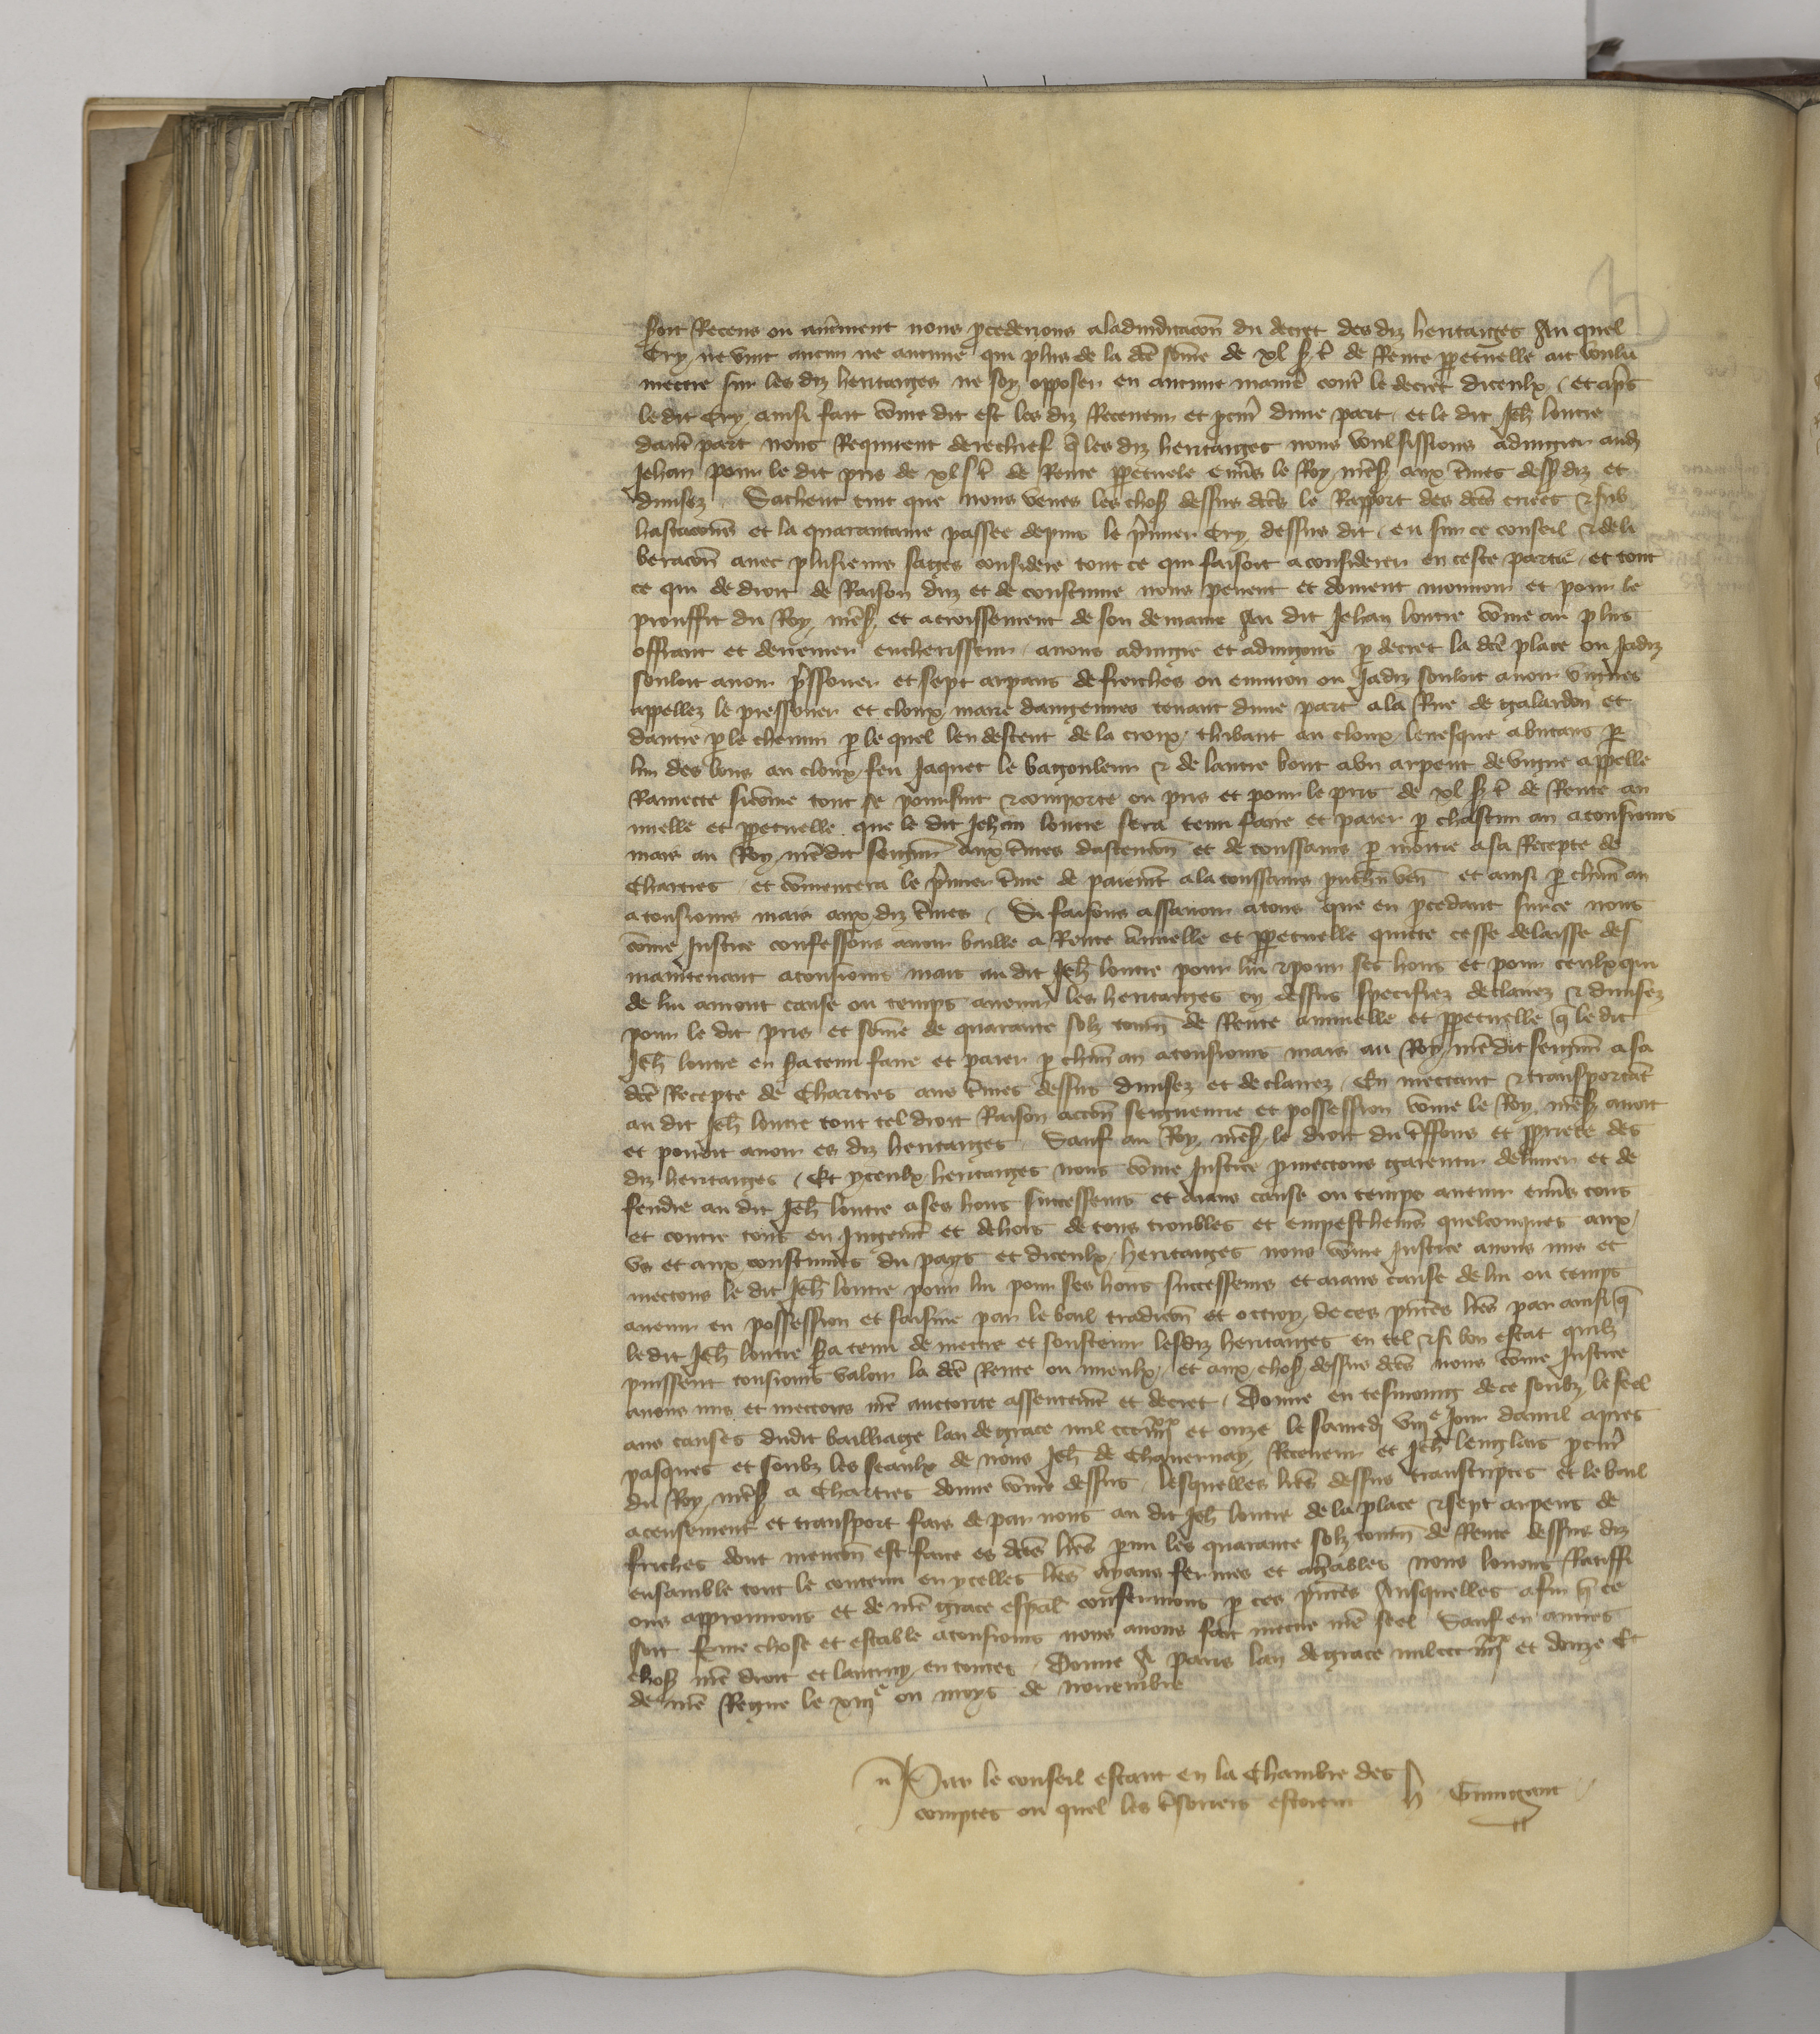 soit Receus ou aut̃ment nous ꝓcederons aladiudicacõn du decret des diz heritages Au quel
Cry ne vint aucun ne aucune qui plus de la dc̃e som̃e de xl s t̃ de Rente ꝑpetuelle ait voulu
mectre sur les diz heritages ne soy opposer en aucune manie cont̃ le decret diceulx / et apr̃s
ledit Cry ainsi fait com̃e dit est les diz Receueur et ꝓcur̃ dune part et le dit Jeh̃ loutre
daut̃ part nous Requirent derechief q̃ les diz heritages nous voulsissions adiugier aud
Jehan pour le dit pris de xl s t̃ de Rente ꝑpetuele enũs le Roy nr̃e s aux t̃mes dess diz et
diuisez Sachent tuit que nous veues les chos dessus dc̃es le Rapport des dc̃es criees & sub
hastacions et la quarantaine passee depuis le p̃mier Cry dessus dit / eu sur ce conseil & deli
beracõn auec plusieurs sages considere tout ce qui faisoit a considerer en ceste partie / et tout
ce qui de droit de Raison duz et de coustume nous peuent et doiuent mouuoir et pour le
prouffit du Roy nr̃e s et acroissement de son demaine Au dit Jehan loutre com̃e au plus
offrant et derrenier encherisseur auons adiugie et adiugons ꝑ decret la dc̃e place ou Jadiz
souloit auoir p̃ssouer et sept arpans de friches ou enuiron ou Jadiz souloit auoir vignes
appellez le pressouer et cloux maire dangennes tenant dune part ala Rue de galardon et
dautre ꝑ le chemin ꝑ le quel len descent de la croix thibaut au cloux leuesque abutans ꝑ
lun des bous au cloux feu Jaquet le bagouleur & de lautre bout a vn arpent de vigne appelle
Ramecte sicom̃e tout se poursuit & comporte ou pris et pour le pris de xl s t̃ de Rente an
nuelle et ꝑpetuelle que le dit Jehan loutre sera tenu faire et paier ꝑ chascun an atousiours
mais au Roy nr̃edit seigneur aux t̃mes dascencion et de toussains ꝑ moitie a sa Recepte de
Chartres / et com̃encera le p̃mier t̃me de paiemt̃ ala toussains prouch̃n ven̄ et ainsi ꝑ ch̃un an
atousiours mais aux diz t̃mes / Si faisons assauoir atous que en ꝓcedant sur ce nous
com̃e Justice confessons auoir baille a Rente annuelle et ꝑpetuelle quicte cesse delaisse des
maintenant atousiours mais au dit Jeh̃ loutre pour lui & pour ses hoirs et pour ceulx qui
de lui auront cause ou temps auenir les heritages cy dessus specifiez declarez & diuisez
pour le dit pris et som̃e de quarante solz tourñ de Rente annuelle et ꝑpetuelle q̃ le dit
Jeh̃ loutre en sera tenu faire et paier ꝑ ch̃un an atousiours mais au Roy nr̃edit seigneur a sa
dc̃e Recepte de Chartres aus t̃mes dessus diuisez et declarez / En mectant & transportant
au dit Jeh̃ loutre tout tel droit Raison accõn seigneurie et possession com̃e le Roy nr̃es auoit
et pouoit auoir es diz heritages Sauf au Roy nr̃es le droit du t̃ffons et ꝓpriete des
diz heritages / Et yceulx heritages nous com̃e Justice ꝓmectons garentir deliurer et de
fendre au dit Jeh̃ loutre a ses hoirs successeurs et aians cause ou temps auenir enũs tous
et contre tous en Jugemt̃ et dehors de tous troubles et empeschemẽs quelconques aux
vs et aux coustumes du pays et diceulx heritages nous com̃e Justice auons mis et
mectons le dit Jeh̃ loutre pour lui pour ses hoirs successeurs et aians cause de lui ou temps
auenir en possession et saisine par le bail tradicõn et octroy de ces p̃ntes lr̃es par ainsi q̃
ledit Jeh̃ loutre sera tenu de mectre et soustenir lesdiz heritages en tel & si bon estat quilz
puissent tousiours valoir la dc̃e Rente ou mieulx / et aux chos dessus dc̃es nous com̃e Justice
auons mis et mectons nr̃e auctorite assentemt̃ et decret / Donne en tesmoing de ce soubz le seel
aus causes dudit bailliage lan de grace mil ccc iiij xx et onze le samedi viij e Jour dauril apres
pasques et soubz les seaulx de nous Jeh̃ de Chauernay Receueur et Jeh̃ lenglais ꝓcur̃
du Roy nr̃es a Chartres donne com̃e dessus / lesquelles lr̃es dessus transcriptes et le bail
acensement et transport fais de par nous au dit Jeh̃ loutre de la place & sept arpens de
friches dont mencion est faite es dc̃es lr̃es parmi les quarante solz tourñ de Rente dessus diz
ensamble tout le contenu en ycelles lr̃es Ayans fermes et agreables nous louons Ratiffi
ons approuuons et de nr̃e grace esp̃al confermons ꝑ ces p̃ntes Ausquelles afin q̃ ce
soit ferme chose et estable atousiours nous auons fait mectre nr̃e seel Sauf en autres
chos nr̃e droit et lautruy en toutes / Donne A paris lan de grace mil ccc iiij xx et douze Et
de nr̃e Regne le xiij e ou moys de nouembre
Par le conseil estant en la Chambre des
comptes ou quel les t̃soriers estoient H Guingant